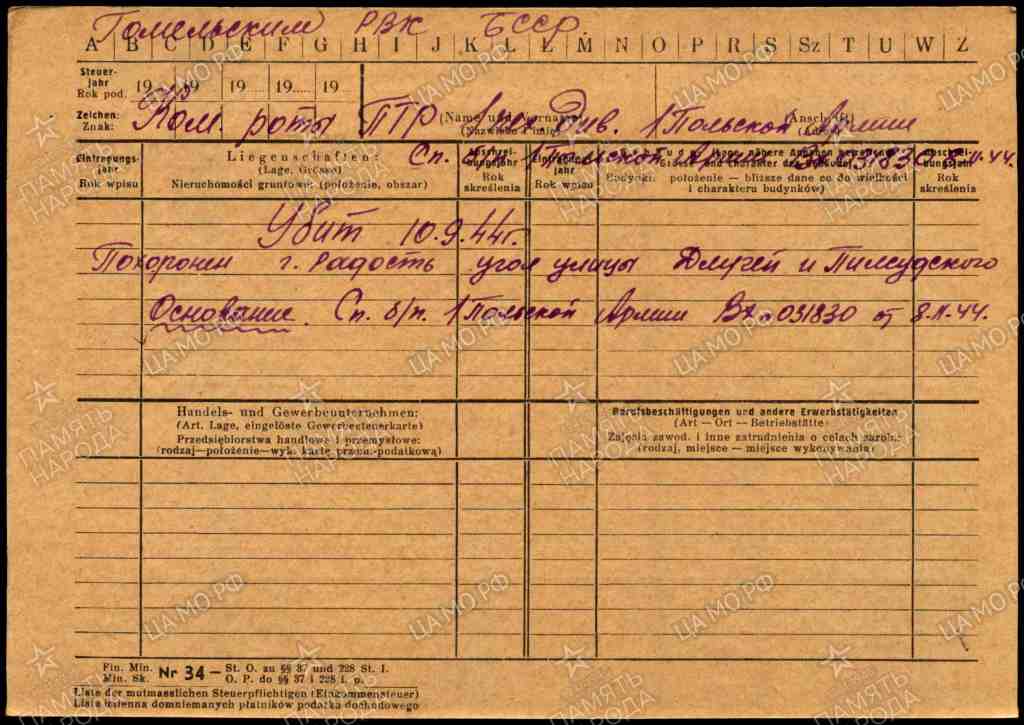 Гомельским РВК БССР
A B C D E F G H I J K L Ł M N O P R S Sz T U W Z
Steuer-
jahr
Rok pod.
19 19 19 19 19
1943
Zeichen:
Znak:
(Name und Vorname)
(Nazwisko i imię)
(Anschrift)
Ком. роты ПТР 1 пех. Див. 1 Польской Армии
Eintragungs-
jahr
Rok wpisu
Liegenschaften:
(Lage, Grösse)
Nieruchomości gruntowe: (położenie, obszar)
Rok
skreślenia
Rok wpisu
Budynki: położenie — bliższe dane co do wielkości
i charakteru budynków)
Rok
skreślenia
Сп. 1 Польской Армии Вх 031830 8.11.44.
Убит 10.9.44г.
Похоронен г. Радость угол улицы Длугей и Пилсудского
Основание. Сп. б/п. 1 Польской Армии Вх-031830 от 8.11.44.
Handels- und Gewerbeunternehmen:
(Art. Lage, eingelöste Gewerbesteuerkarte)
Przedsiębiorstwa handlowe i przemysłowe:
(rodzaj—położenie—wyk. kartę przem.-podatkową)
Berufsbeschäftigungen und andere Erwerbstätigkeiten
(Art — Ort — Betriebstätte)
Zajęcia zawod. i inne zatrudnienia o celach zarob.:
(rodzaj, miejsce — miejsce wykonywania)
Fin. Min.
Min. Sk.
Nr 34 —
St. O. zu §§ 37 und 228 St. I.
O. P. do §§ 37 i 228 i. p.
Liste der mutmasslichen Steuerpflichtigen (Einkommensteuer)
Lista imienna domniemanych płatników podatku dochodowego
ПАМЯТЬ НАРОДА
ЦАМО.РФ